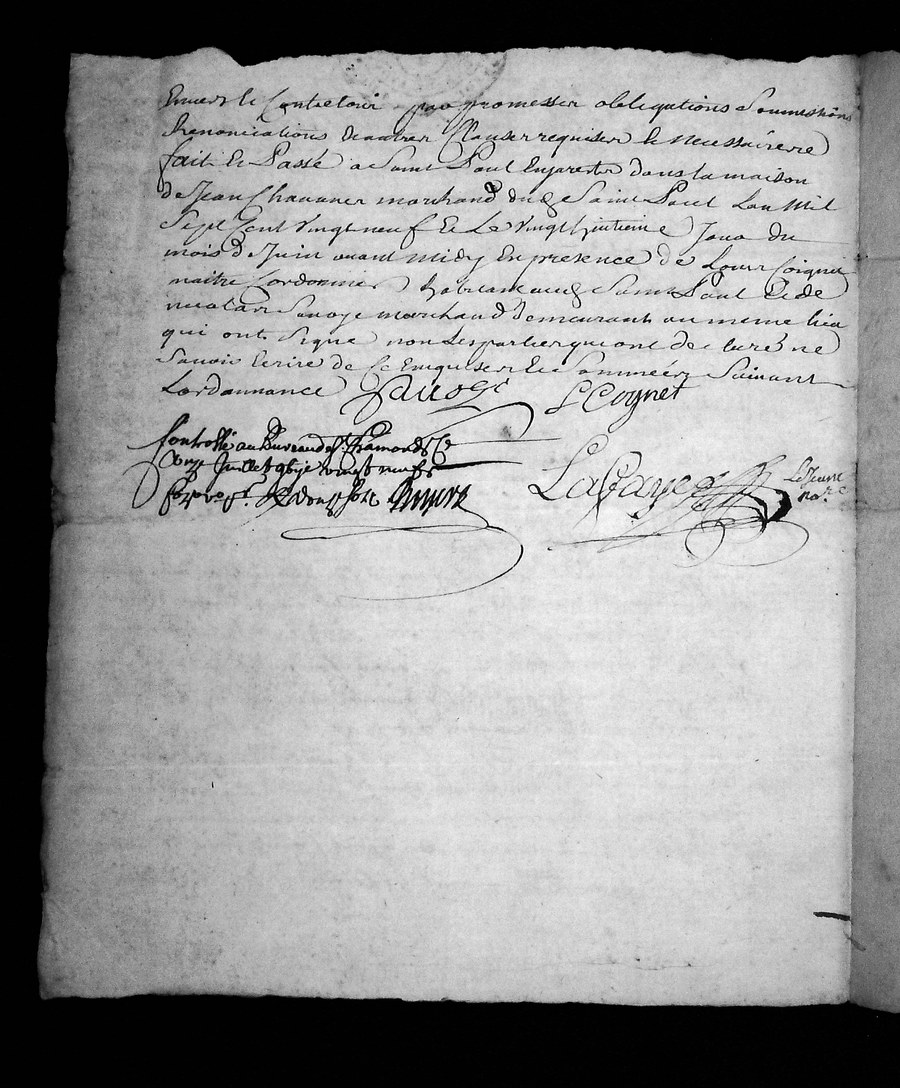 Envers le Contretour par promesser obligations Soumissions
Renonciations deautrer Clauser requiser le necessairere
fait Et Passé a Saint Paul Enjarester dans la maison
de Jean Chavaner marchand dud Saint Paul Lan Mil
Sept Cent vingt neuf Et Le vingt huitieme Jour du
mois de Juin avant midy En presence de Louis Coignet
maitre Cordonnier habitant aud Saint Paul Et de
Savoye marchand demeurant au meme lieu
qui ont Signe non Lespartier qui ont declaré ne
Savoir Ecrire de Ce Enquiser Et Sommeér Suivant
Lordonnance Savoye L Coynet
Controllé au Bureau de St Chamond Ce
Onze Juillet vingt neuf
Lafaye Le Jeune
no.re